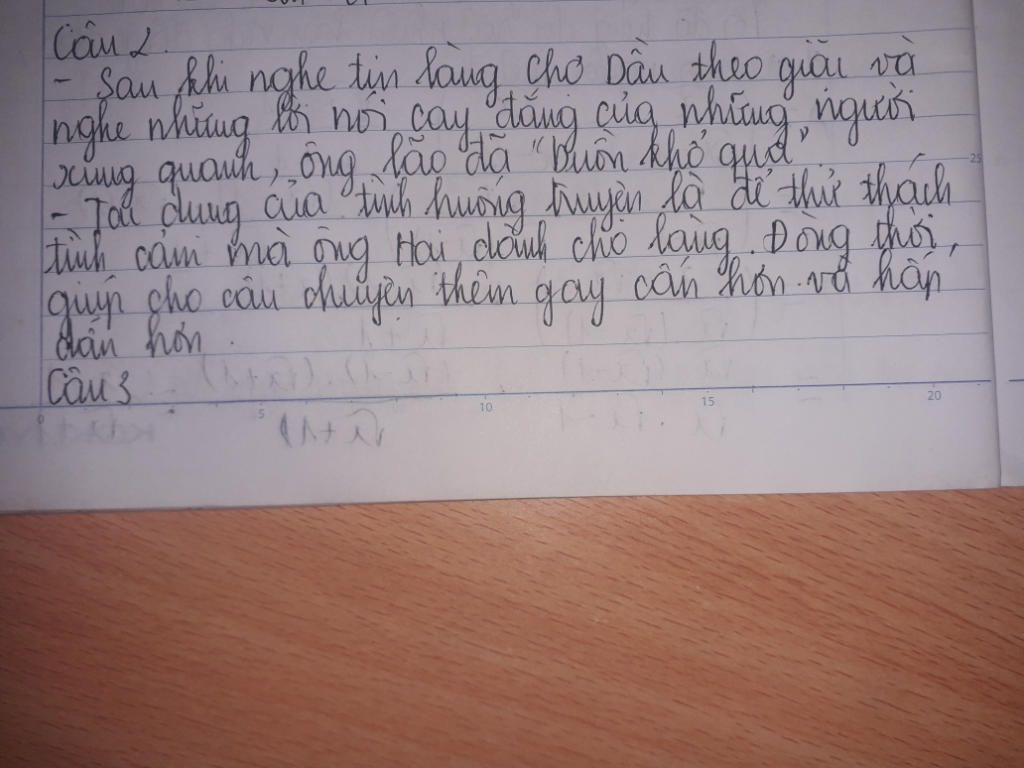 Câu 2.
- Sau khi nghe tin làng chợ Dầu theo giặc và
nghe những lời nói cay đắng của những người
xung quanh, ông lão đã "buồn khổ quá".
- Tác dụng của tình huống truyện là để thử thách
tình cảm mà ông Hai dành cho làng. Đồng thời,
giúp cho câu chuyện thêm gay cấn hơn và hấp
dẫn hơn.
Câu 3
0 5 10 15 20
25